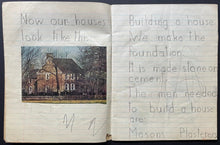 Now our houses
look like this
Building a house
We make the
foundation.
It is made stone or
cement.
The men needed
to build a house
are:
Masons Plasterers